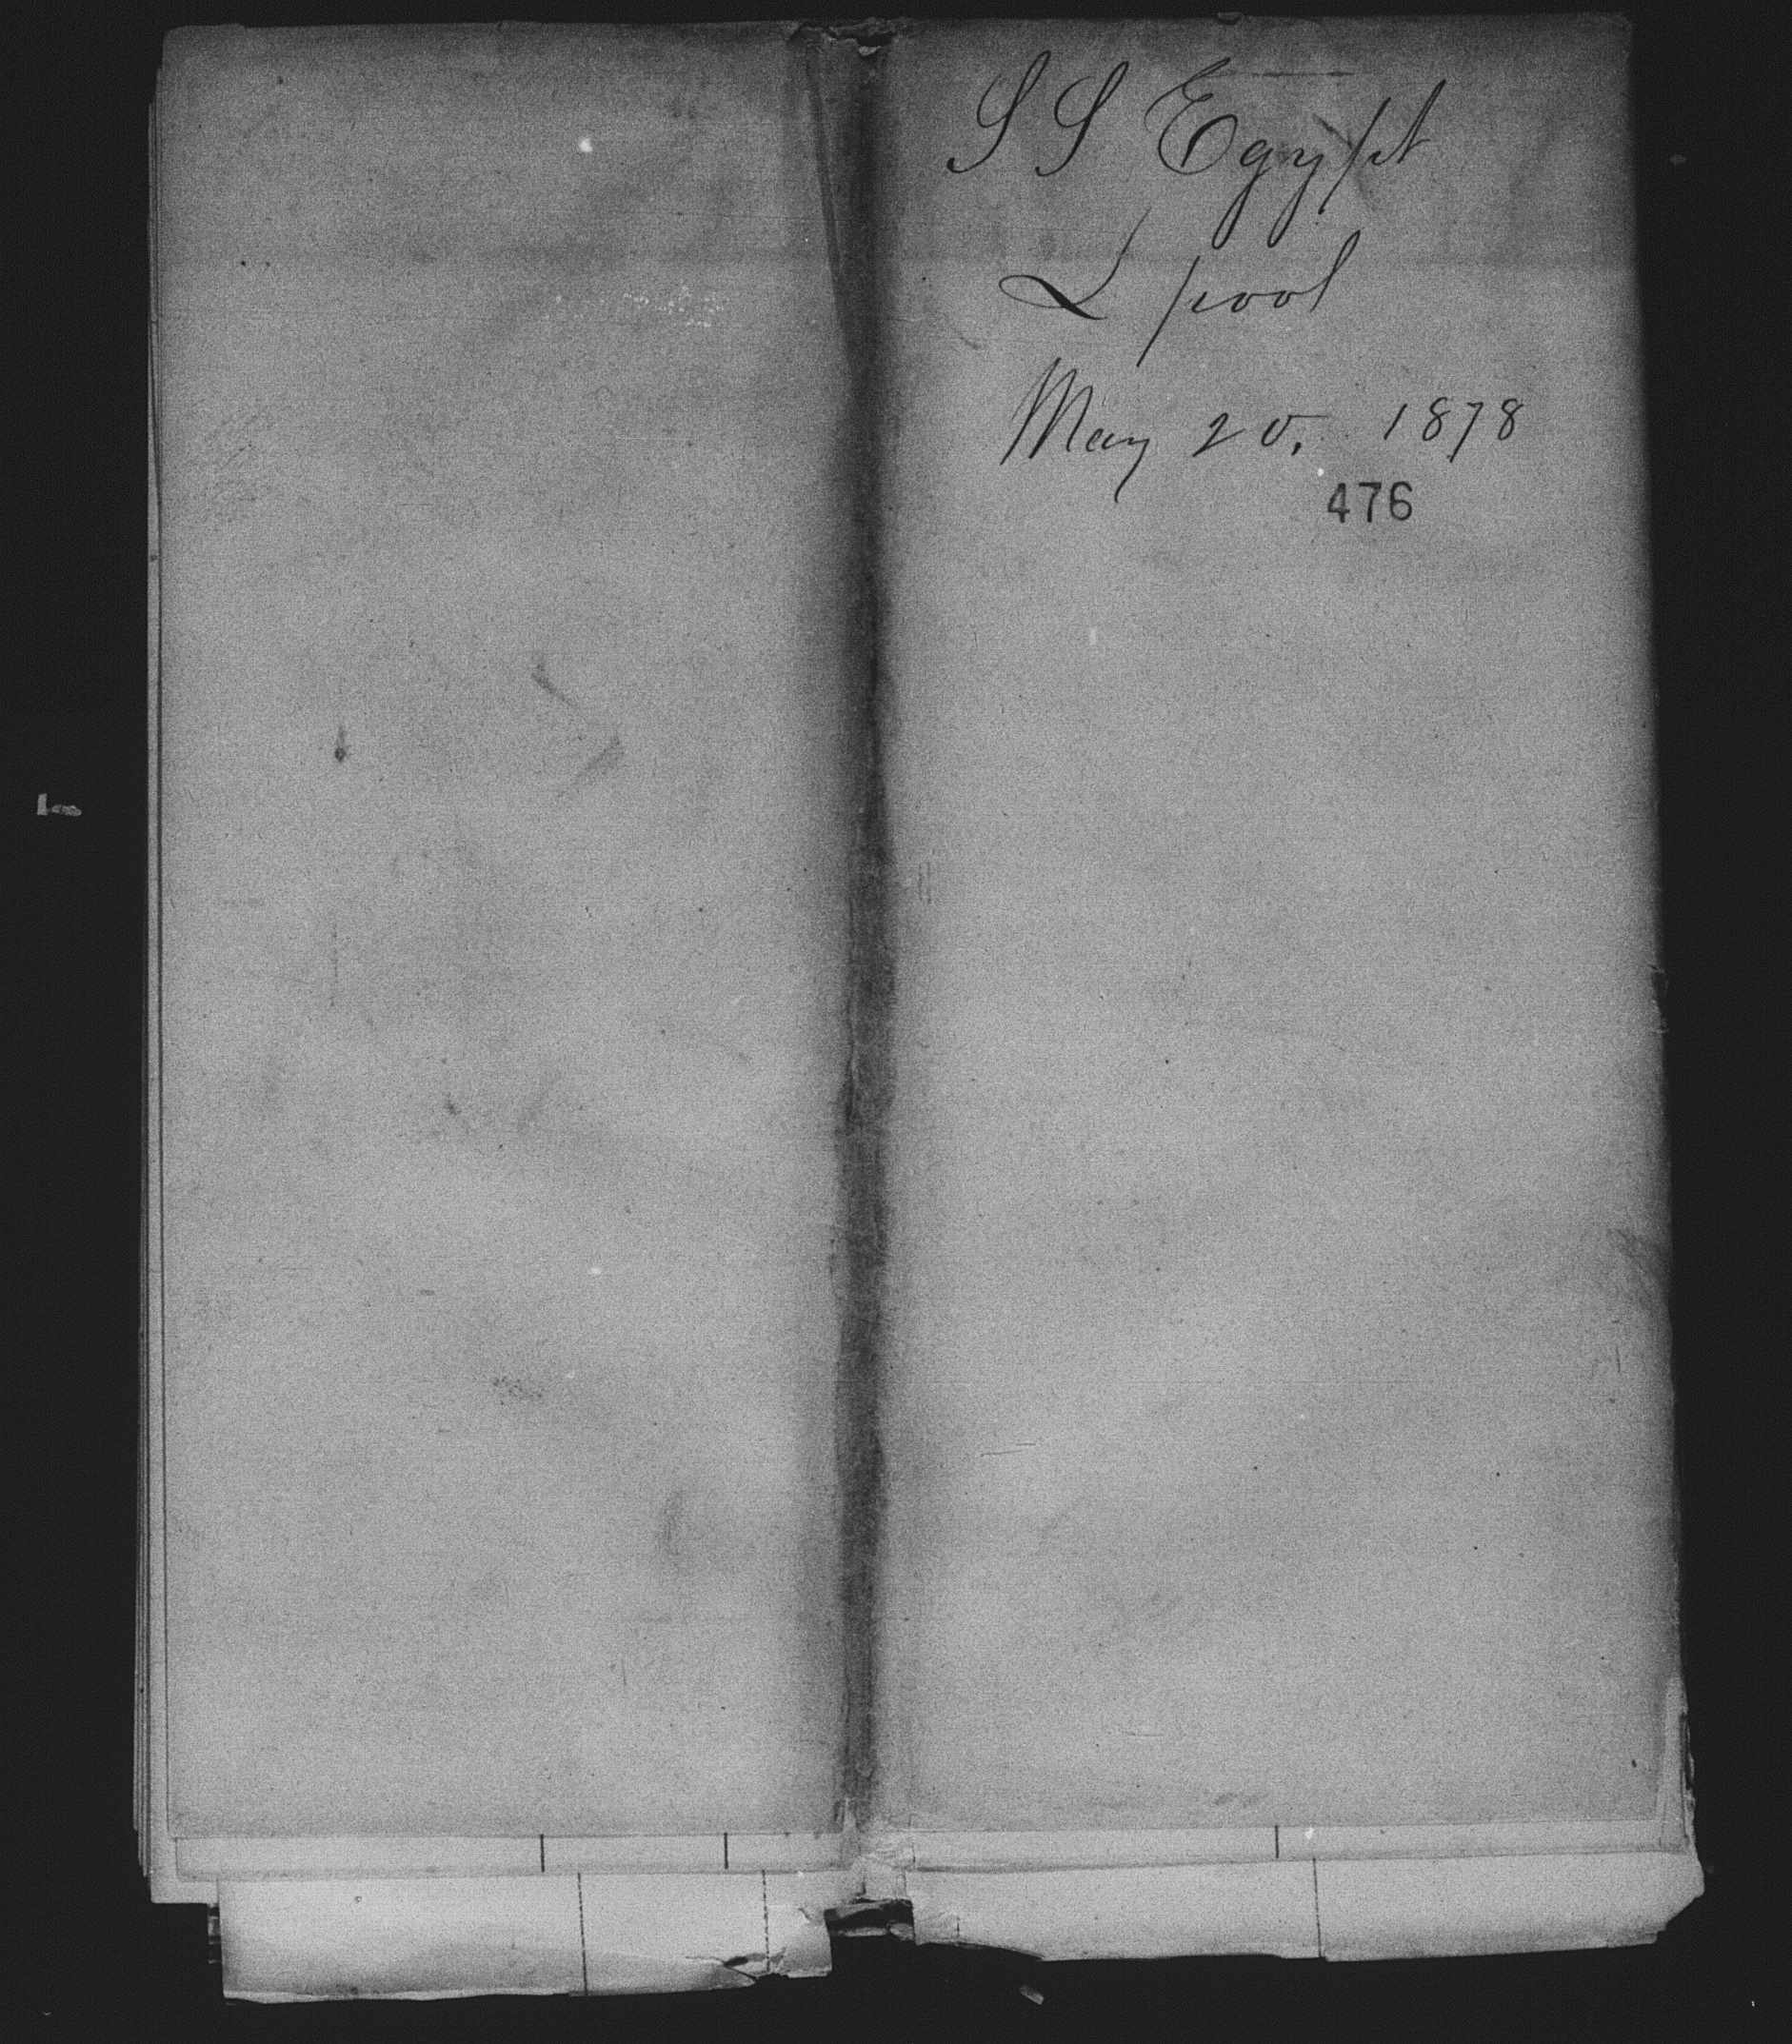 S S Egypt
L pool
May 20, 1878
476